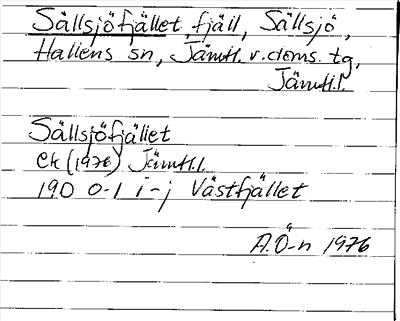 Sällsjöfjället, fjäll, Sällsjö,
Hallens sn, Jämtl. v. doms. tg,
Jämtl.l.
Sällsjöfjället
ek (1976) Jämtl.l.
190 0-1 i-j Västfjället
A.Ö-n 1976